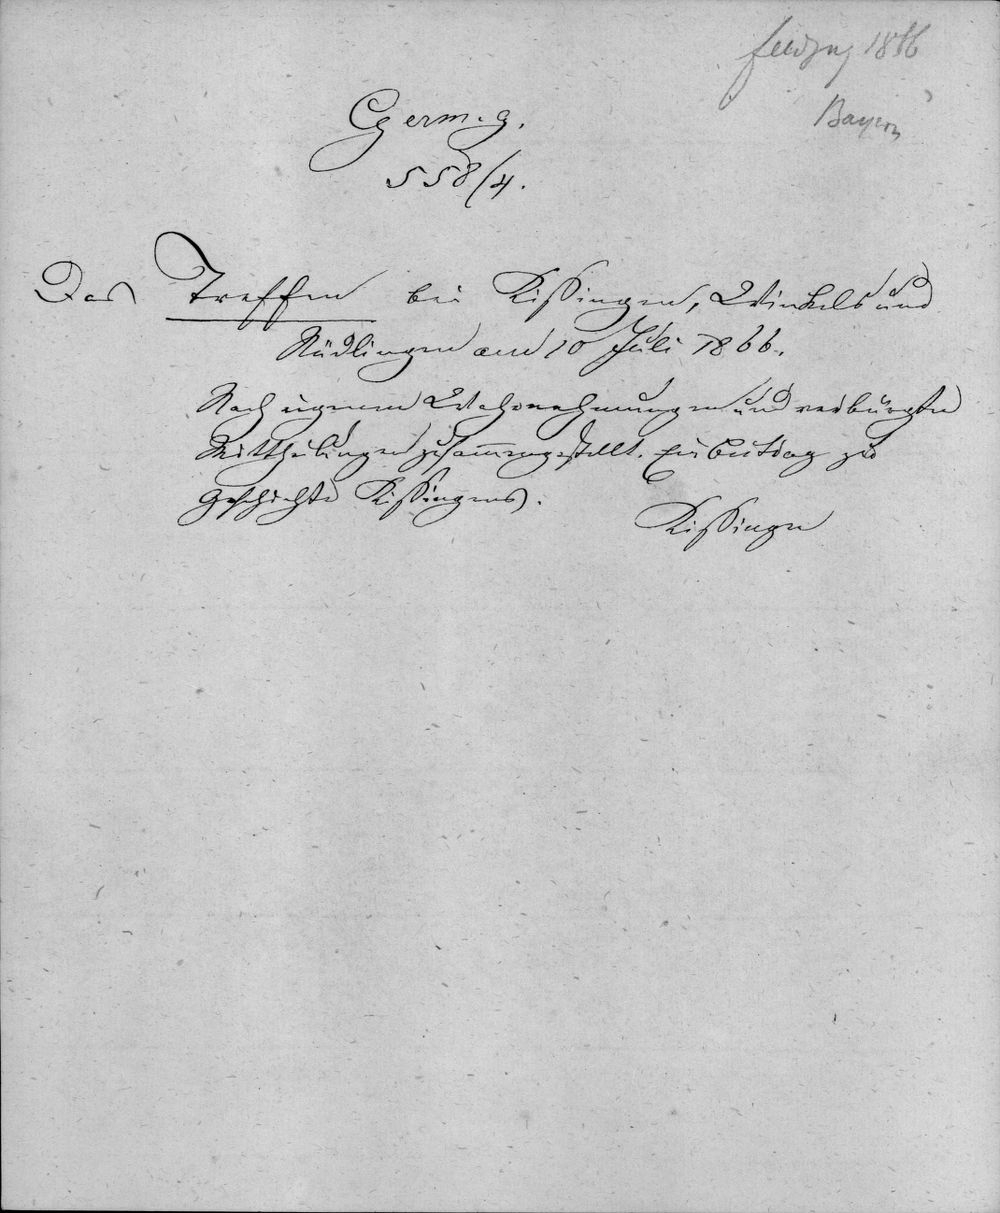 Feldzug 1866
Bayern
Germ. g.
558/4.
Das Treffen bei Kissingen, Winkels und
Nüdlingen am 10 Juli 1866.
Nach eigenen Wahrnehmungen und verbürgten
Mittheilungen zusammengestellt. Ein Beitrag zur
Geschichte Kissingens.
Kissingen